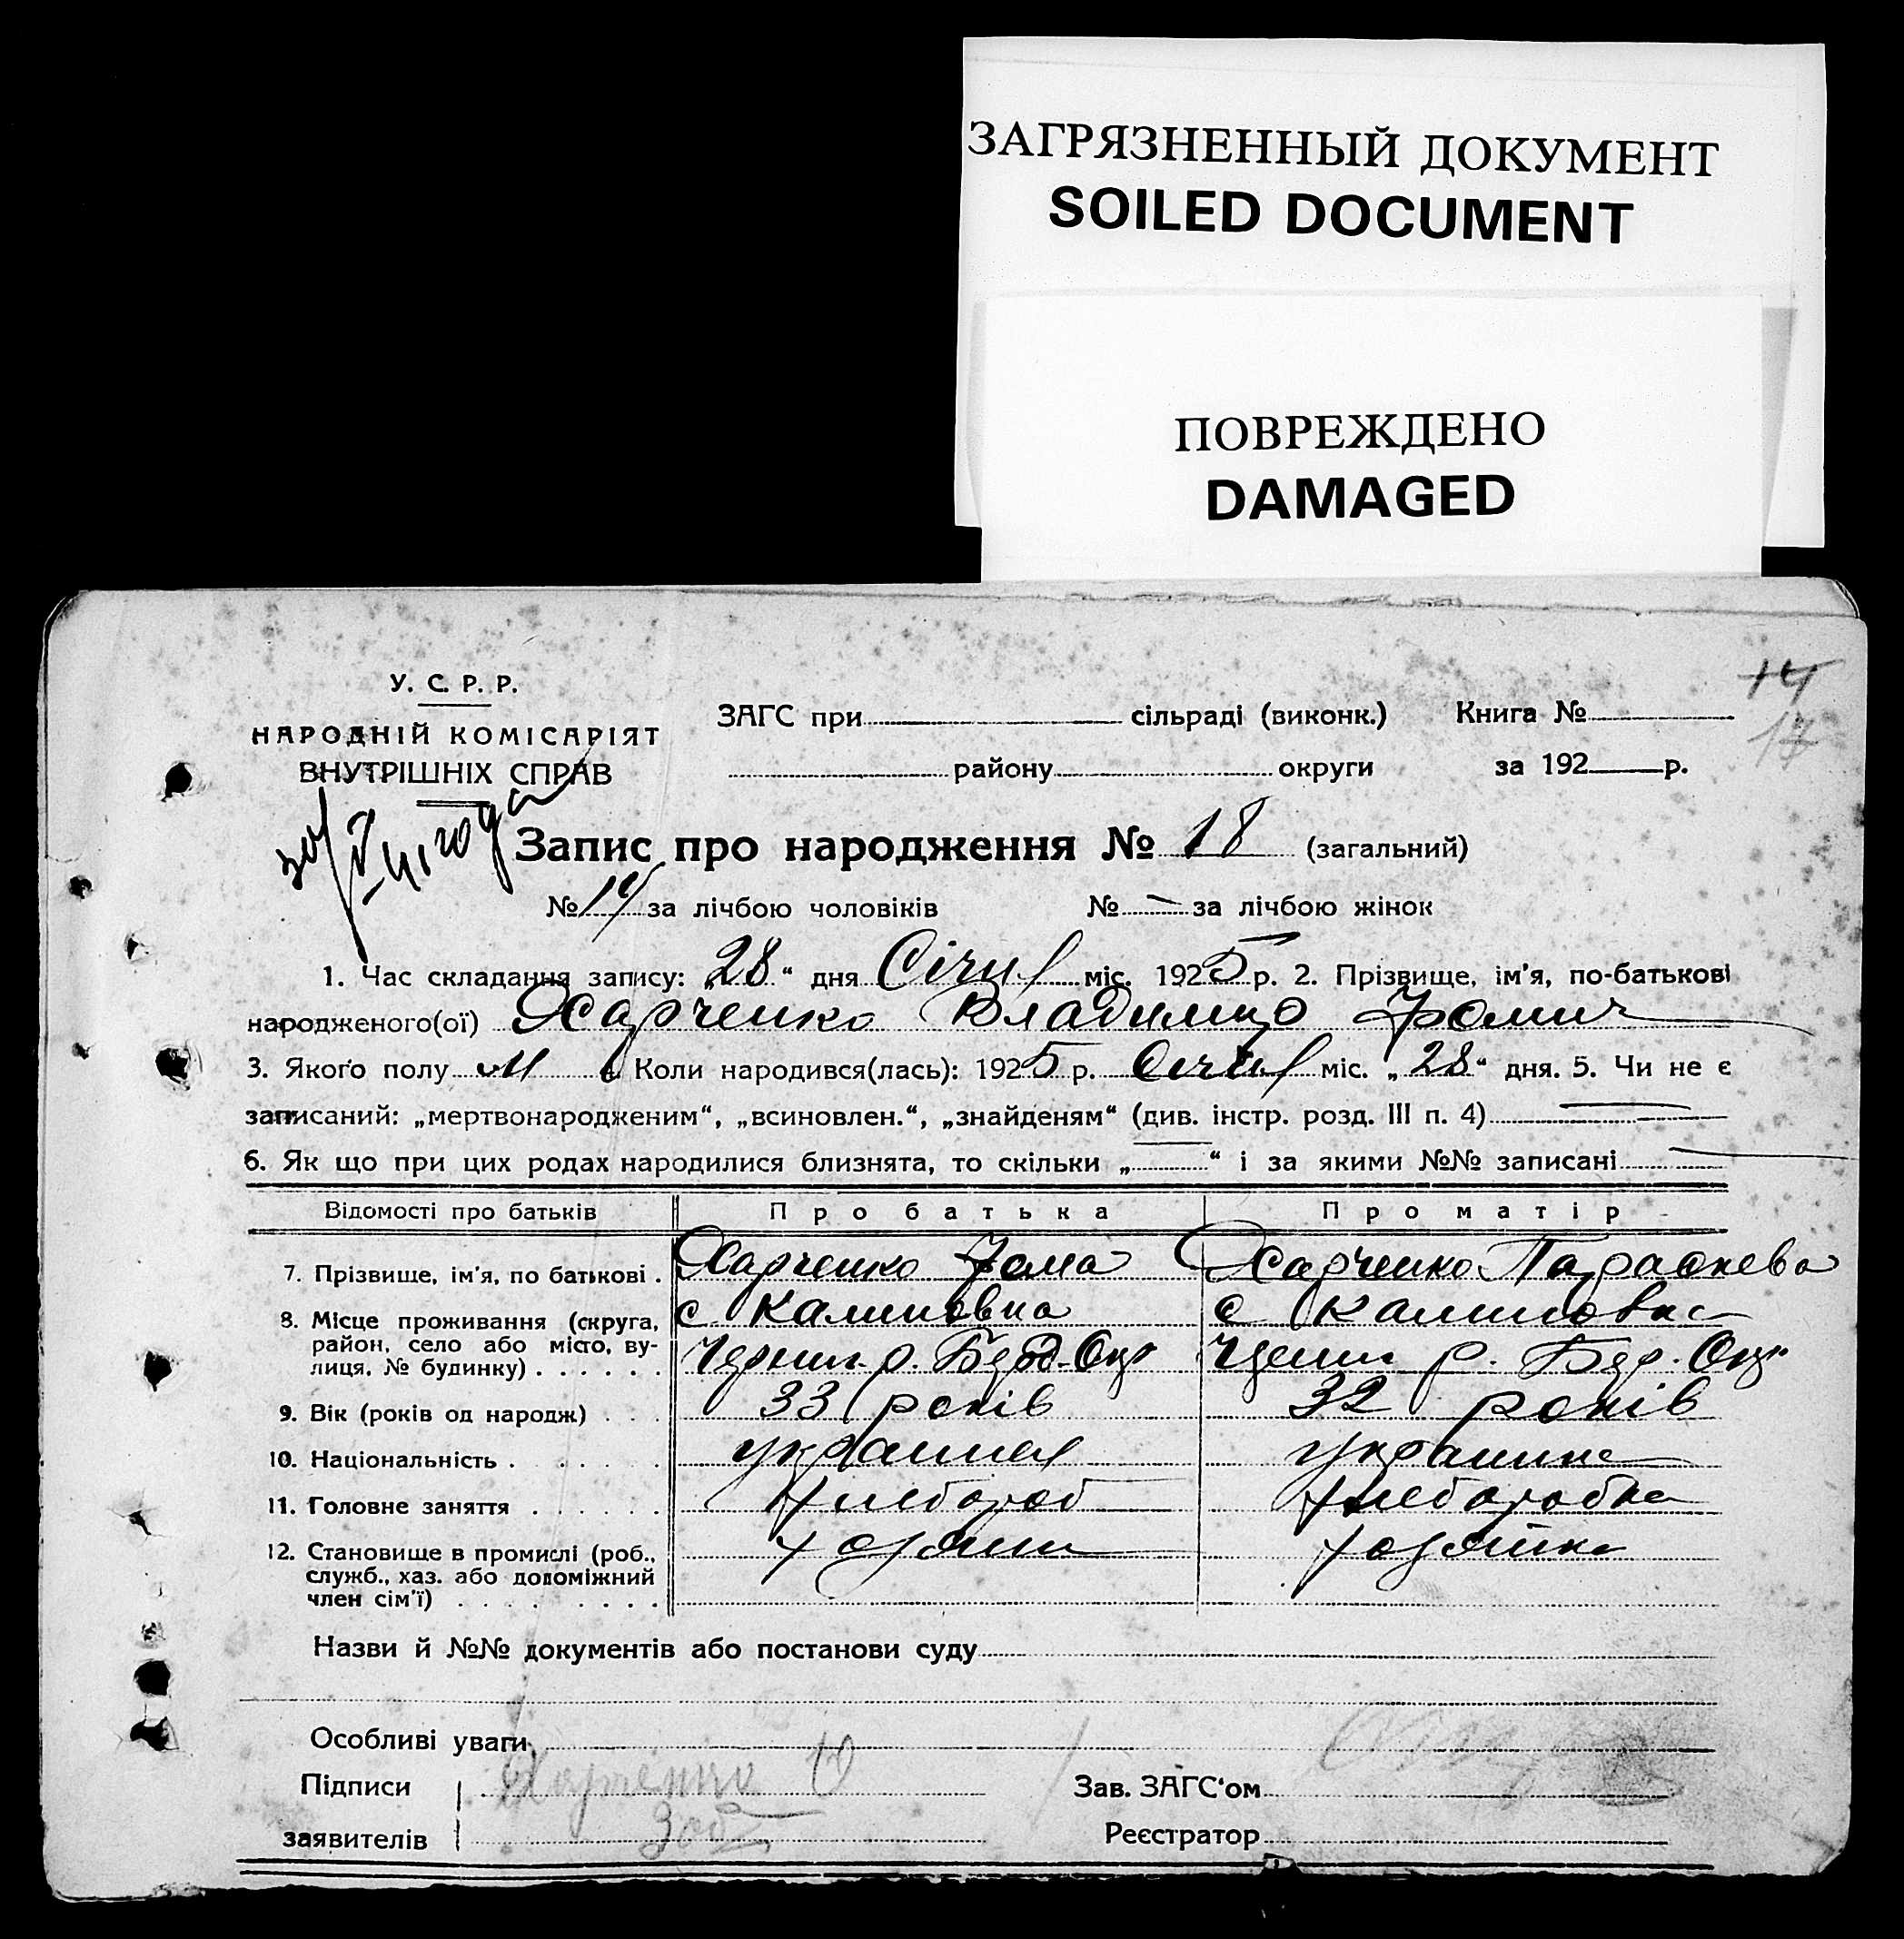 ЗАГРЯЗНЕННЫЙ ДОКУМЕНТ
SOILED DOCUMENT
ПОВРЕЖДЕНО
DAMAGED
14
17
У. С. Р. Р.
НАРОДНІЙ КОМІСАРІЯТ
ВНУТРІШНІХ СПРАВ
ЗАГС при сільраді (виконк.) Книга №
району округи за 192 р.
Запис про народження № 18 (загальний)
№ 14 за лічбою чоловіків № — за лічбою жінок
1. Час складання запису: „28“ дня Січня міс. 1925 р. 2. Прізвище, ім'я, по-батькові
народженого(ої) Харченко Владимир Фомич
3. Якого полу м Коли народився(лась): 1925 р. Січня міс. „28“ дня. 5. Чи не є
записаний: „мертвонародженим“, „всиновлен.“, „знайденям“ (див. інстр. розд. III п. 4) —
6. Як що при цих родах народилися близнята, то скільки „—“ і за якими №№ записані —
Відомості про батьків Про батька Про матір
7. Прізвище, ім'я, по батькові . Харченко Фома Харченко Параскева
8. Місце проживання (округа, район, село або місто, вулиця, № будинку) . . . . . . с Калиновка Черниг. р. Берд. Окр с Калиновка р. Бер. Окр.
9. Вік (років од народж) . . . 33 років 32 років
10. Національність . . . . . . . українец українка
11. Головне заняття . . . . . . хлібороб хліборобка
12. Становище в промислі (роб., служб., хаз. або допоміжний член сім'ї) . . . . . . . . . хозяин хозяйка
Назви й №№ документів або постанови суду
Особливі уваги
Підписи Харченко Зав. ЗАГС'ом
заявителів Реєстратор